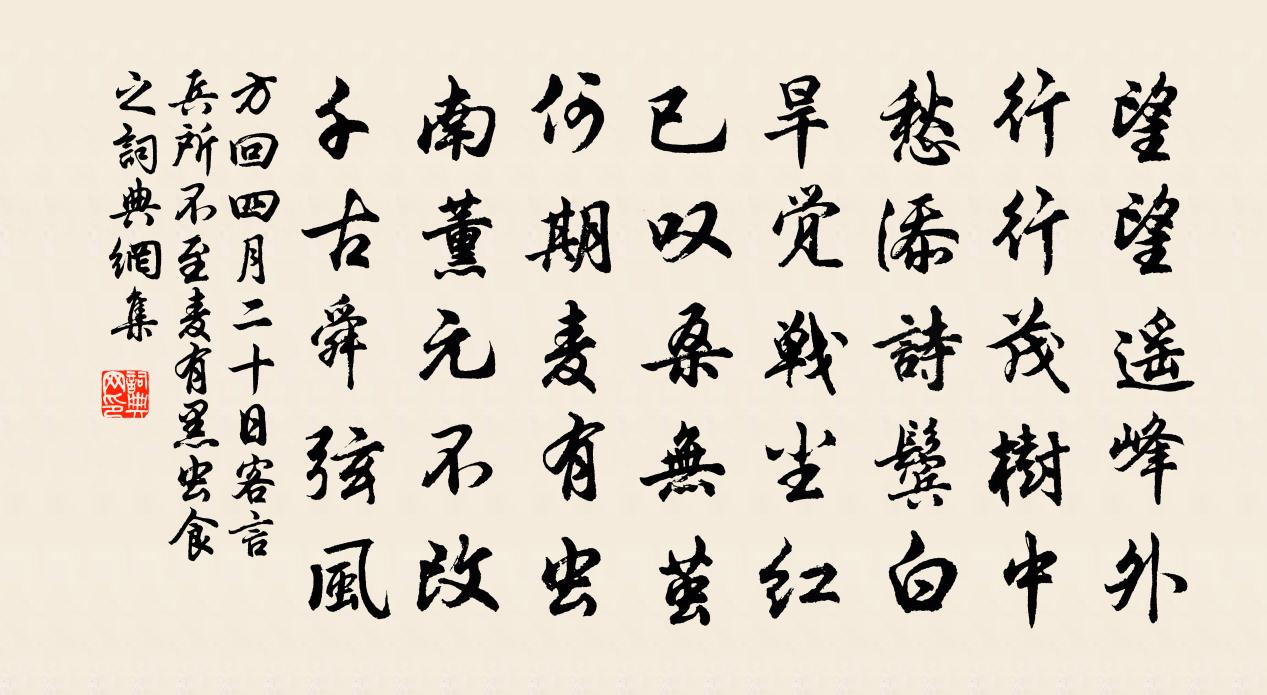 望望遥峰外
行行茂樹中
愁添詩鬓白
旱觉戦尘红
已叹桑無茧
何期麦有虫
南薰元不改
千古舜弦風
方回四月二十日客言
兵所不至麦有黑虫食
之詞典網集
詞典网印